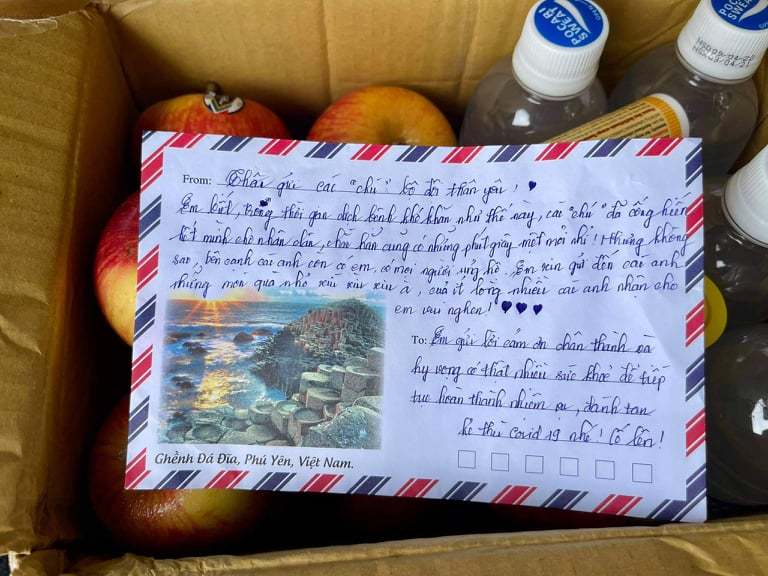 POCARI
SWEAT
POCARI
SWEAT
From: Thân gửi các "chú" bộ đội thân yêu! ♥
Em biết, trong thời gian dịch bệnh khó khăn như thế này, các "chú" đã cống hiến
hết mình cho nhân dân, chắc hẳn cũng có những phút giây mệt mỏi nhỉ! Nhưng không
sao, bên cạnh các anh còn có em, có mọi người ủng hộ. Em xin gửi đến các anh
những món quà nhỏ xíu xiu xíu à, của ít lòng nhiều các anh nhận cho
em vui nghen! ♥ ♥ ♥
To: Em gửi lời cảm ơn chân thành và
hy vọng có thật nhiều sức khoẻ để tiếp
tục hoàn thành nhiệm vụ, đánh tan
kẻ thù Covid 19 nhé! Cố lên!
Ghềnh Đá Đĩa, Phú Yên, Việt Nam.